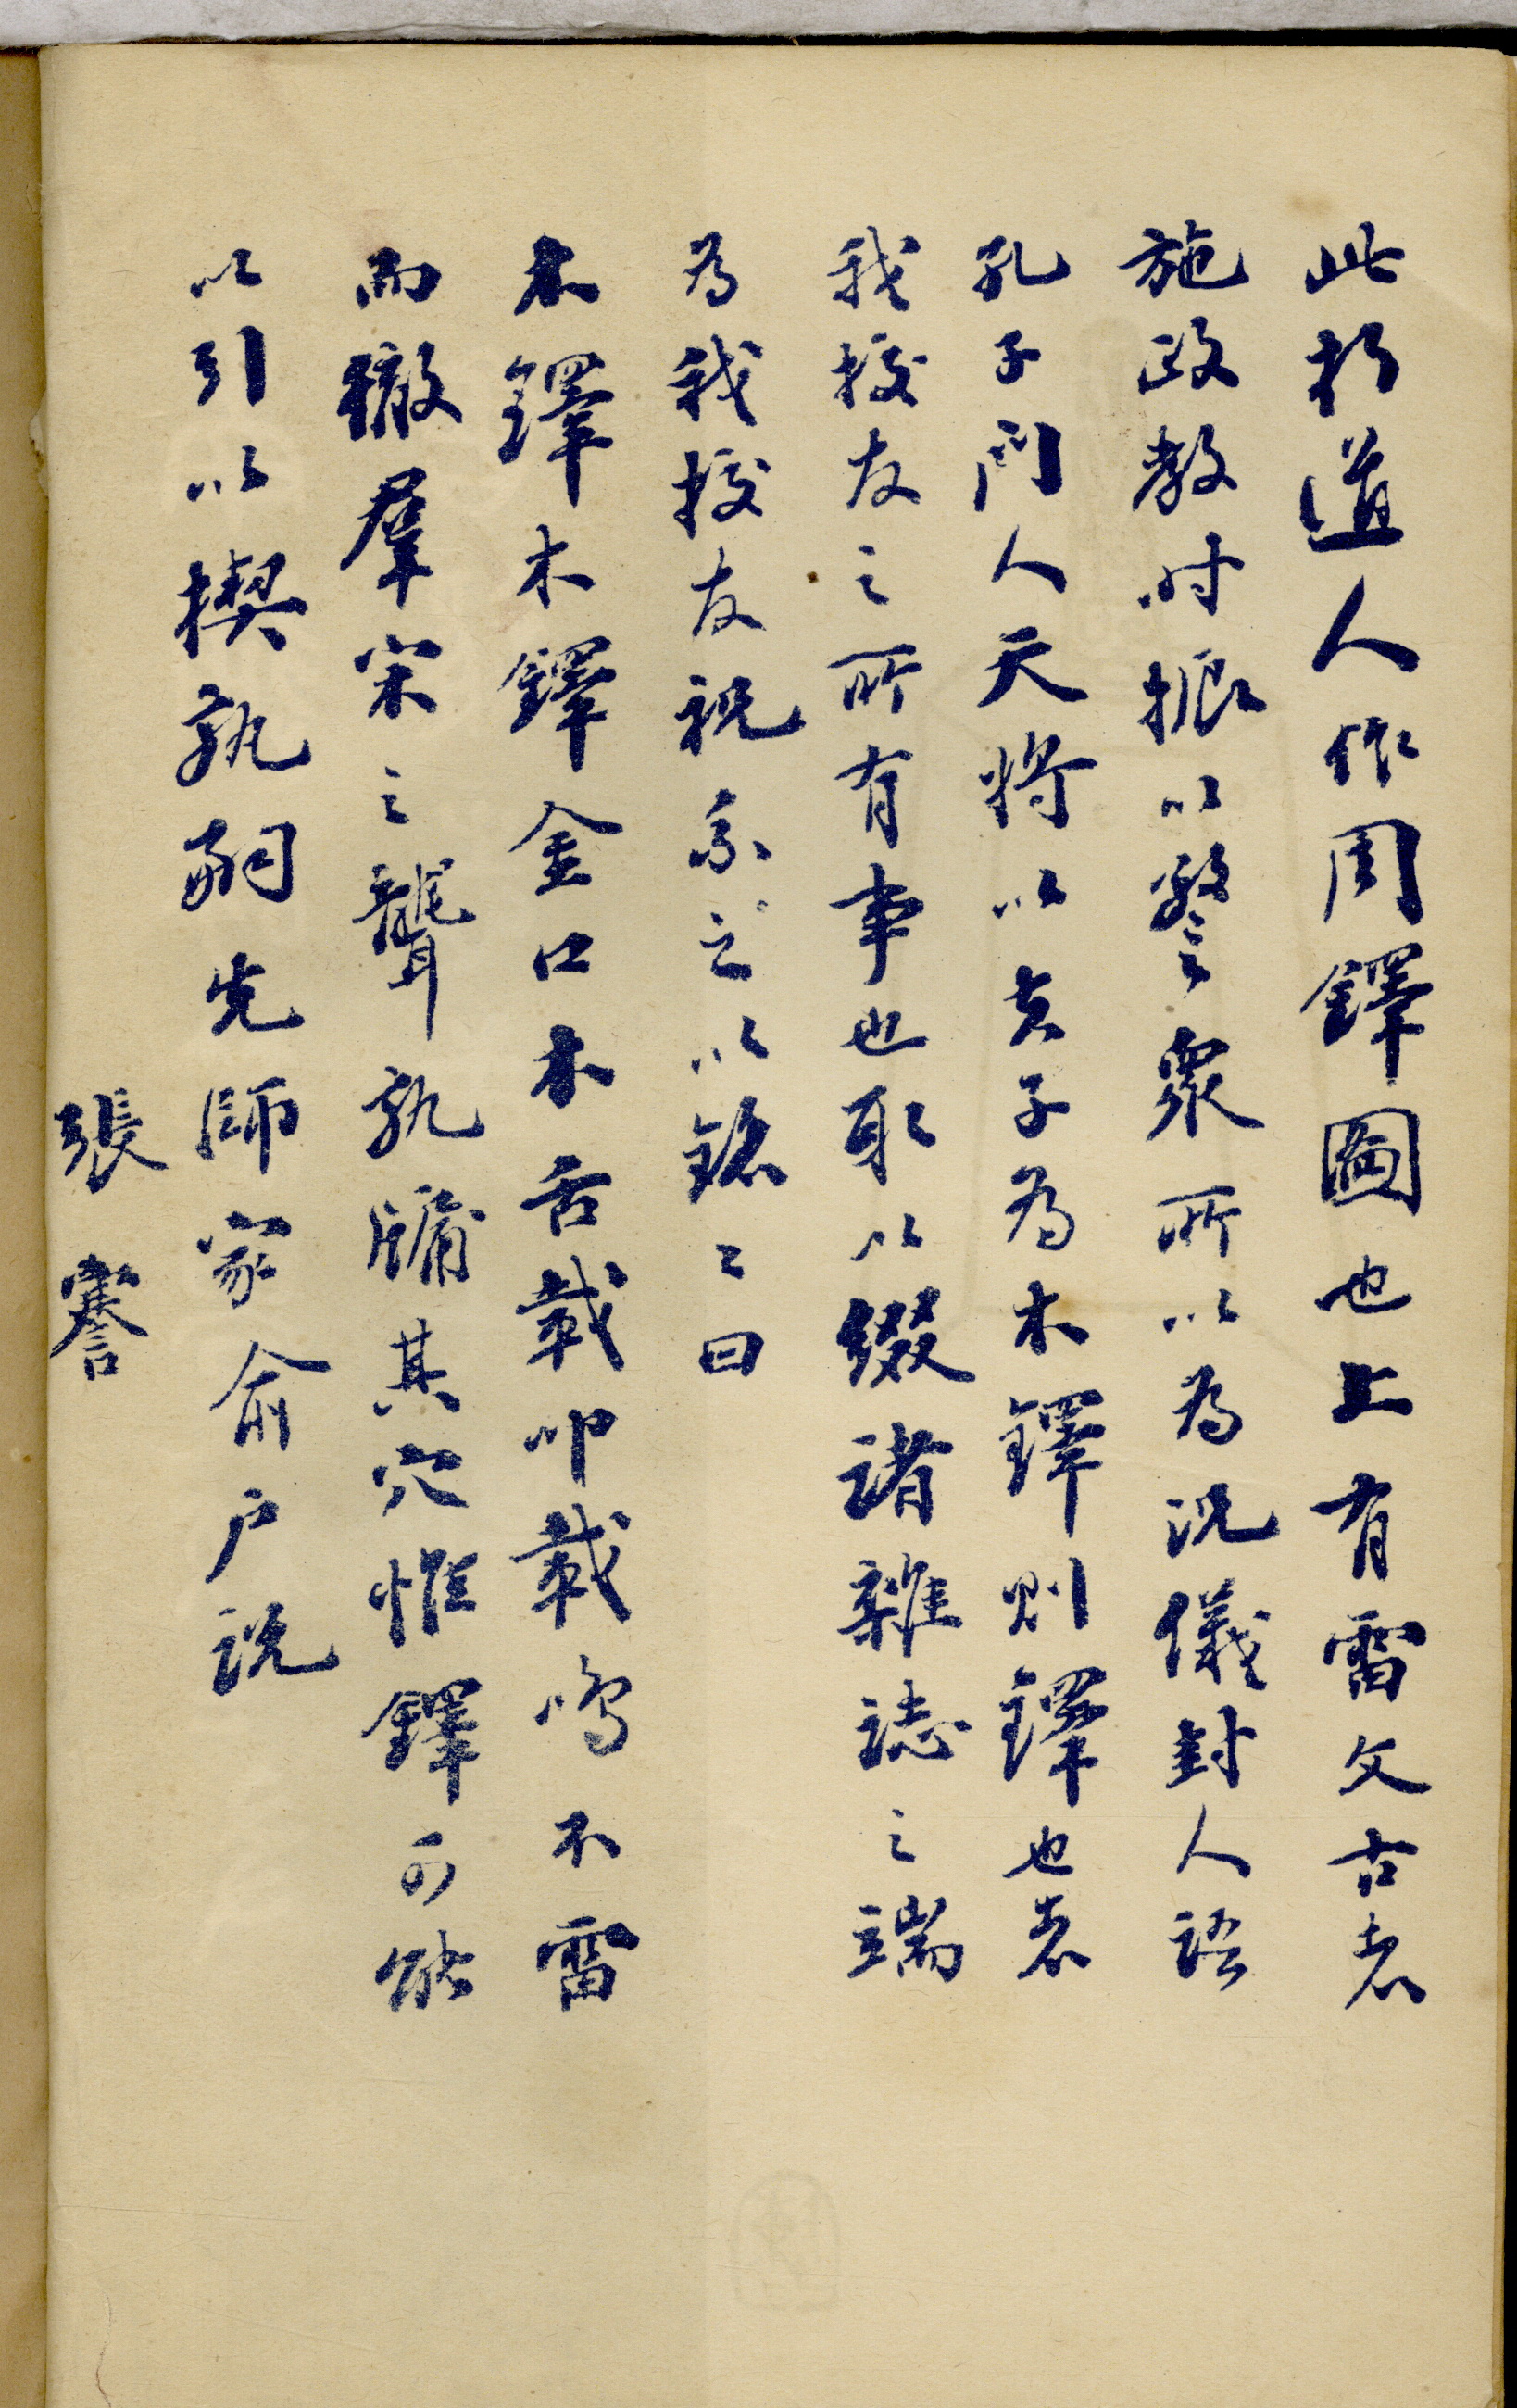 此朽道人作周鐸圖也上有雷文古者
施政教时振以警衆所以為況儀封人語
孔子門人天将以夫子为木鐸則鐸也者
我校友之所有事也取以綴諸雜誌之端
为我校友祝系之以銘々曰
木鐸木鐸金口木舌載叩載鳴不雷
而徹羣寐之聾孰牖其穴惟鐸可能
以引以楔孰嗣先師家俞户説
張謇